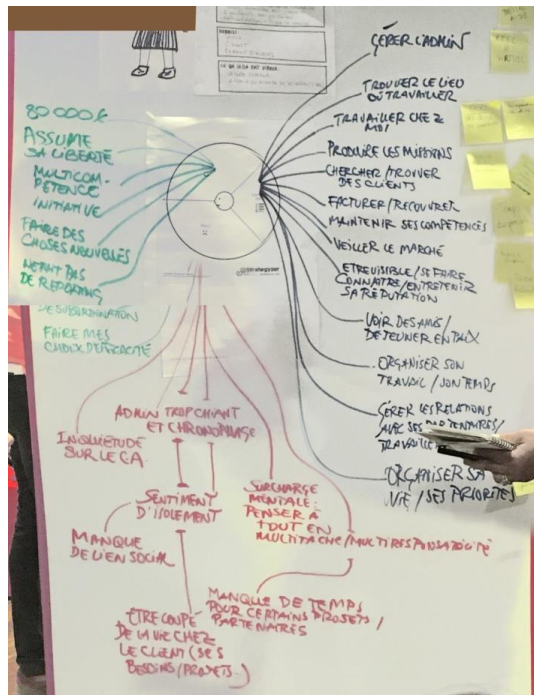 80 000 €
ASSUME
SA LIBERTÉ
MULTICOM-
PÉTENCE
INITIATIVE
FAIRE DES
CHOSES NOUVELLES
N'ETANT PAS
DE REPORTING
DE SUBORDINATION
FAIRE MES
CHOIX D'EFFICACITÉ
GÉRER L'ADMIN
TROUVER LE LIEU
OÙ TRAVAILLER
TRAVAILLER CHEZ
MOI
PRODUIRE LES MISSIONS
CHERCHER/TROUVER
DES CLIENTS
FACTURER/RECOUVRER
MAINTENIR SES COMPÉTENCES
VEILLER LE MARCHÉ
ETRE VISIBLE/SE FAIRE
CONNAITRE/ENTRETENIR
SA RÉPUTATION
VOIR DES AMIS/
DEJEUNER EN PAIX
ORGANISER SON
TRAVAIL/SON TEMPS
GÉRER LES RELATIONS
AVEC SES PARTENAIRES/
TRAVAILLE
ORGANISER SA
VIE/SES PRIORITÉS
Strategyzer
ADMIN TROP CHIANT
ET CHRONOPHAGE
INQUIÉTUDE
SUR LE CA
SENTIMENT
D'ISOLEMENT
MANQUE
DE LIEN SOCIAL
SURCHARGE
MENTALE:
PENSER À
TOUT EN
MULTITACHE/MULTIRESPONSABILITÉ
MANQUE DE TEMPS
POUR CERTAINS PROJETS/
PARTENAIRES
ÊTRE COUPÉ
DE LA VIE CHEZ
LE CLIENT (SES
BESOINS/PROJETS...)